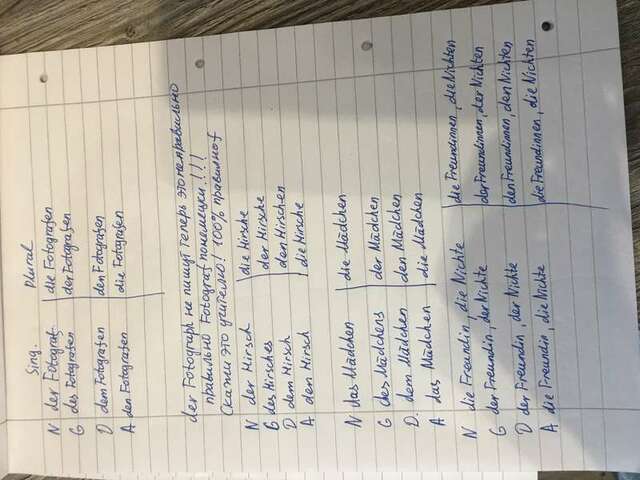 Sing. Plural
N der Fotograf. die Fotografen
G des Fotografen der Fotografen
D dem Fotografen den Fotografen
A den Fotografen die Fotografen
der Fotograph не пишут теперь это неправильно
правильно Fotograf по немецки!!!!
Скажи это учителю! 100% правильно!
N der Hirsch die Hirsche
G des Hirsches der Hirsche
D dem Hirsch den Hirschen
A den Hirsch die Hirsche
N das Mädchen die Mädchen
G des Mädchens der Mädchen
D. dem Mädchen den Mädchen
A das Mädchen die Mädchen
N die Freundin, die Nichte die Freundinnen, die Nichten
G der Freundin, der Nichte der Freundinnen, der Nichten
D der Freundin, der Nichte den Freundinnen, den Nichten
A die Freundin, die Nichte die Freundinnen, die Nichten